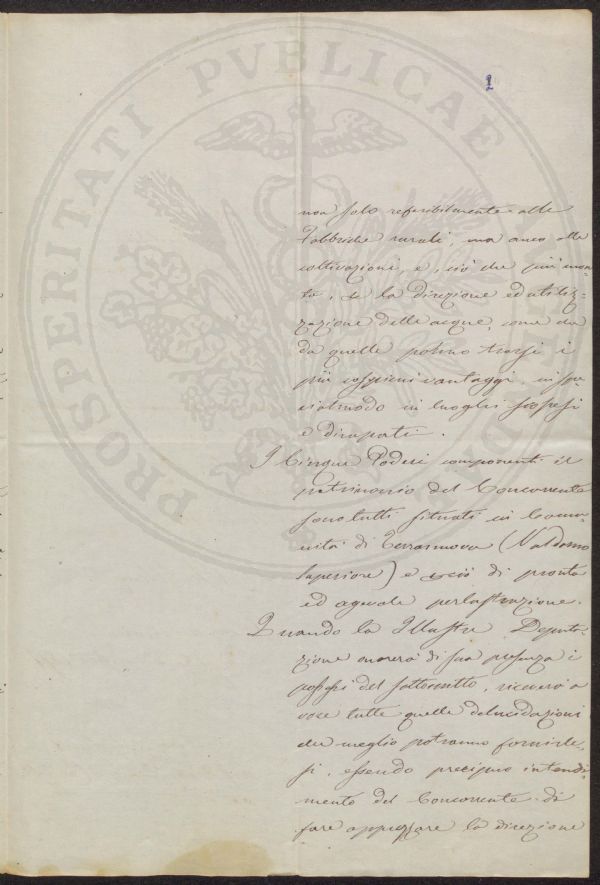 1
PROSPERITATI PVBLICAE
non solo referibilmente alle
Fabbriche rurali, ma anco alle
coltivazioni, e, ciò che più mon-
ta, la direzione ed utiliz-
zazione delle acque, come che
da quelle potrno trarsi i
più cospicui vantaggi, in spe-
cialmodo in luoghi scoscesi
e dirupati.
I Cinque Poderi componenti il
patrimonio del Concorrente
sono tutti situati in Comu-
nità di Terranuova (Valdarno
Superiore) e ciò di pronta
ed agevole perlustrazione.
Quando la Illustre Deputa-
zione onorerà di sua presenza i
possessi del sottoscritto, riceverà a
voce tutte quelle delucidazioni
che meglio potranno fornirle-
si, essendo precipuo intendi-
mento del Concorrente di
fare apprezzare la direzione